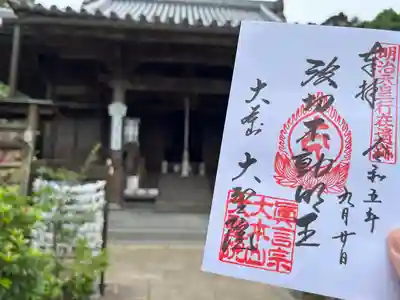 明治天皇行在遺跡
奉拝 令和五年
九月廿日
波切不動明王
大本山 大聖院
眞言宗
大本山
大聖院